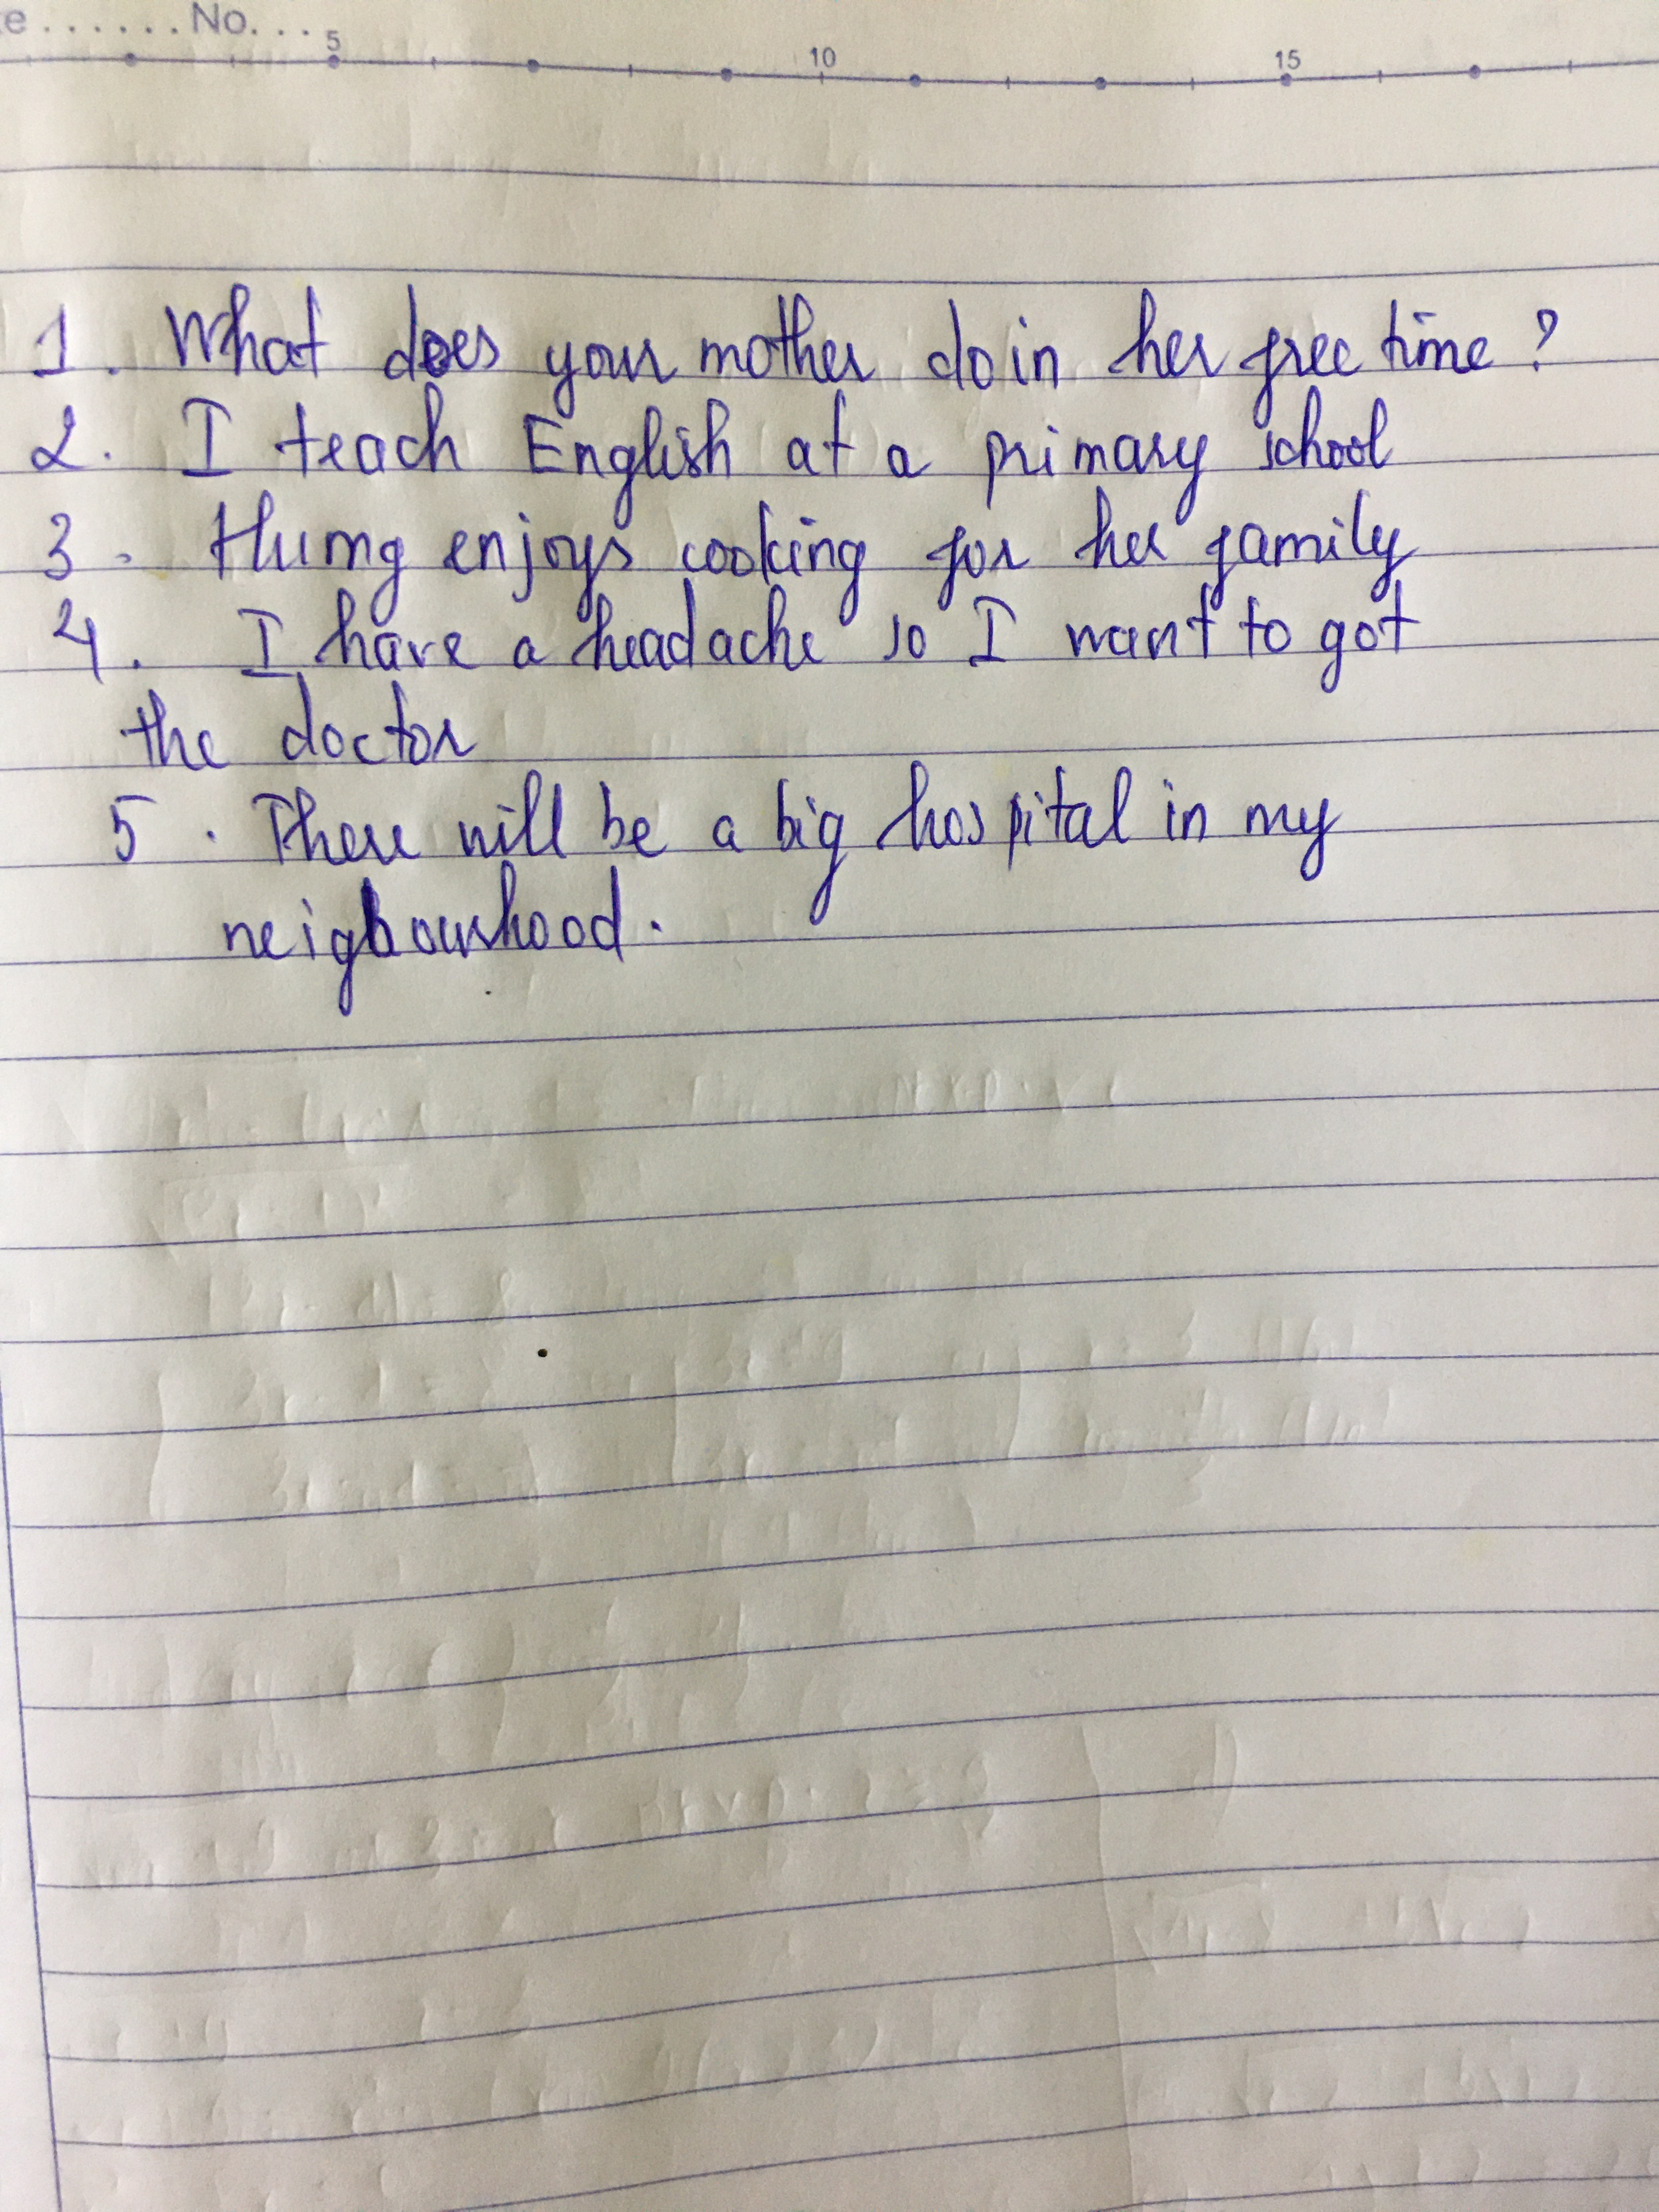 e ...... No. ...
5 10 15
1. What does your mother do in her free time ?
2. I teach English at a primary school
3. Hung enjoys cooking for her family
4. I have a headache so I want to got
the doctor
5. There will be a big hospital in my
neighbourhood.